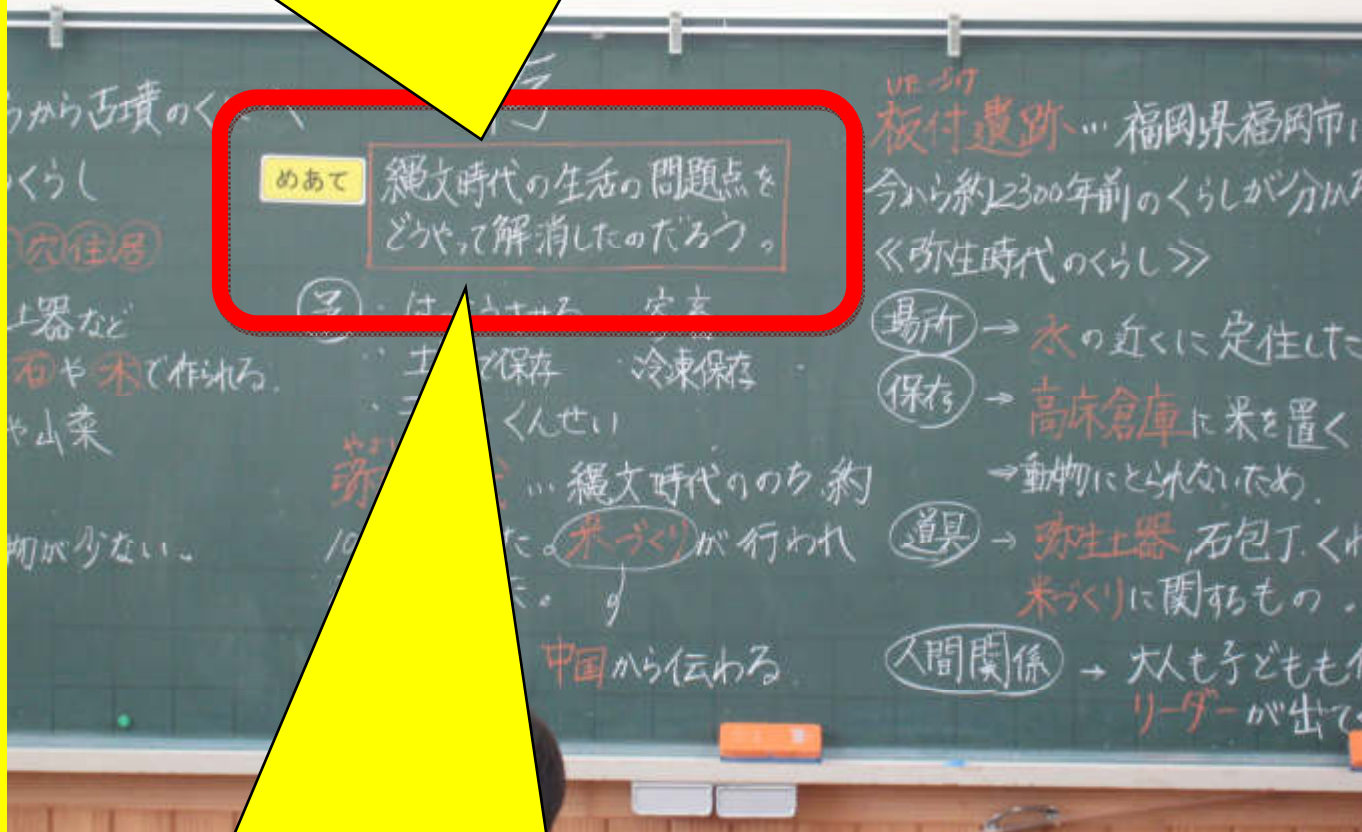 らから古墳のくらしへ
のくらし
穴住居
土器など
石や木で作られる。
や山菜
物が少ない。
めあて
縄文時代の生活の問題点を
どうやって解消したのだろう。
予
家畜
で保存 ・冷凍保存
くんせい
やよい
弥 …縄文時代ののち約
10 た。米づくりが行われ
た。
中国から伝わる
いたづけ
板付遺跡…福岡県福岡市に
今から約2300年前のくらしが分かる
≪弥生時代のくらし≫
場所→水の近くに定住した
保存→高床倉庫に米を置く
⇒動物にとられないため。
道具→弥生土器,石包丁.くわ
米づくりに関するもの。
人間関係→大人も子どもも
リーダーが出て